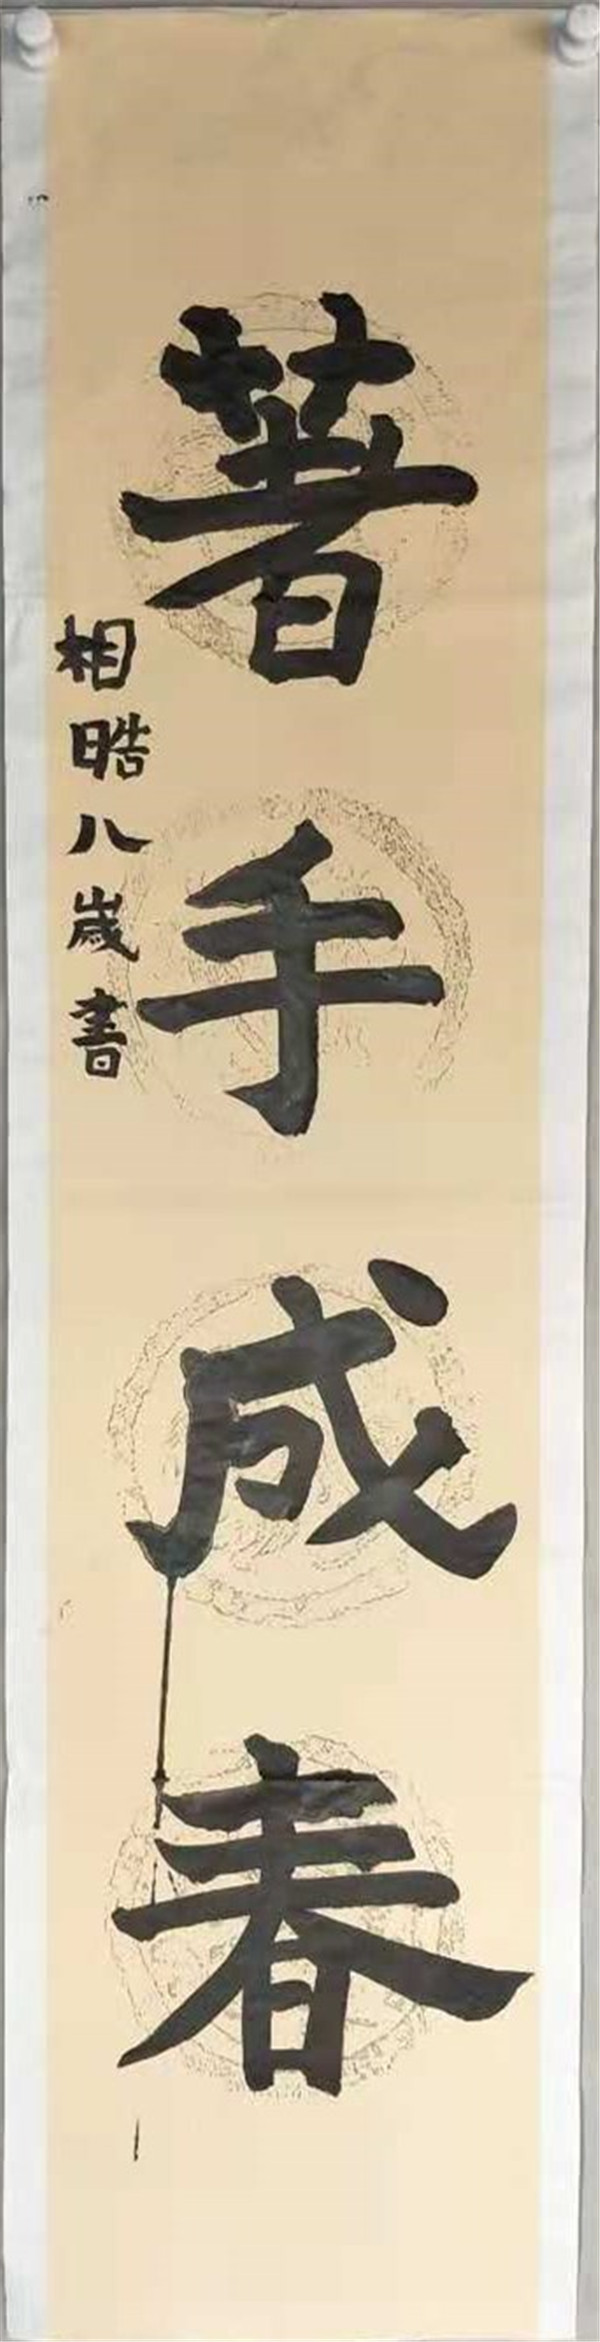 著手成春
相晧八歲書